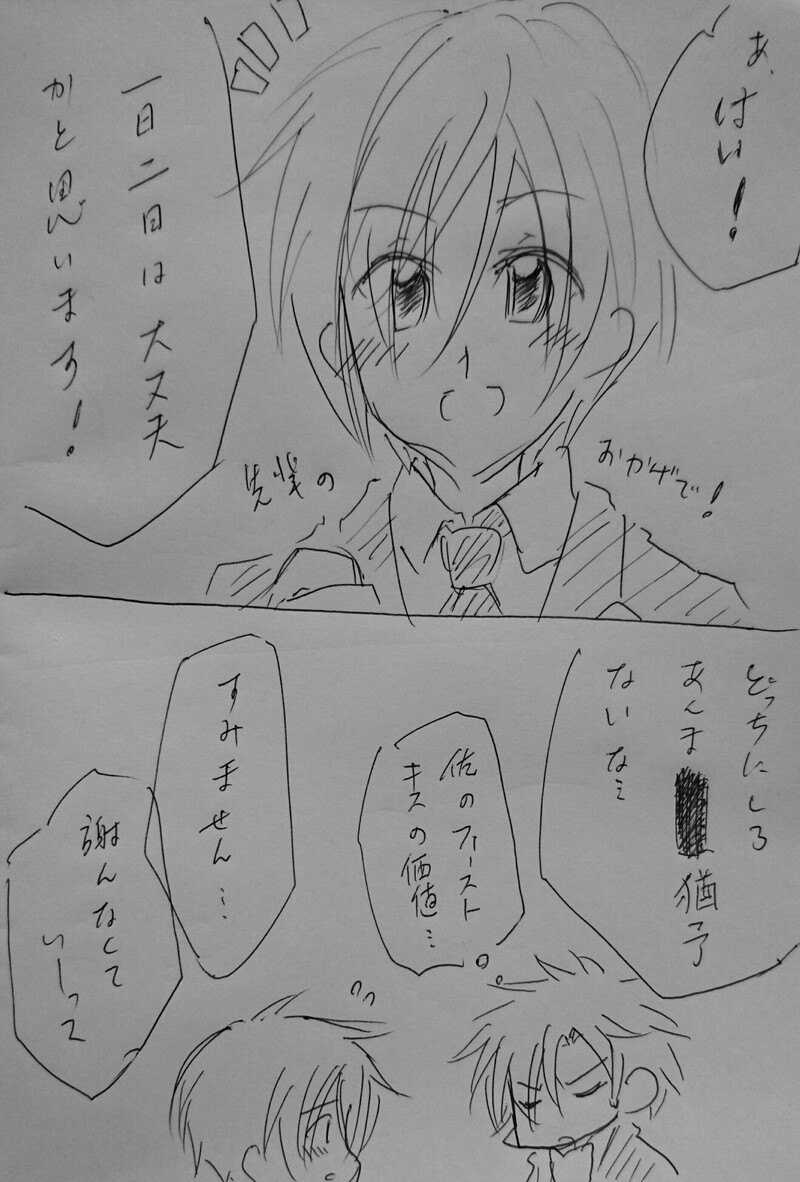 あ、はい!
一日二日は大丈夫
かと思います!
先輩の
おかげで!
どっちにしろ
あんま猶予
ないな…
俺のファースト
キスの価値…
すみません…
謝んなくて
いーって